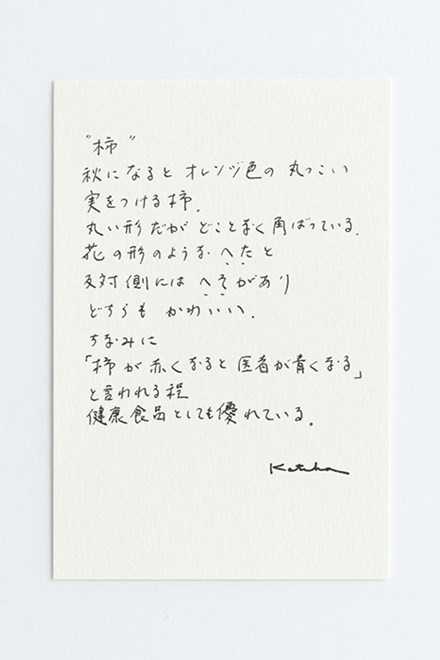 "柿"
秋になると オレンヅ色の 丸っこい
実をつける柿.
丸い形だが どことなく 角ばっている.
花の形のような へたと
反対側には へそがあり
どちらも かわいい.
ちなみに
「柿が赤くなると 医者が青くなる」
と言われる程
健康食品としても優れている.
Katsha